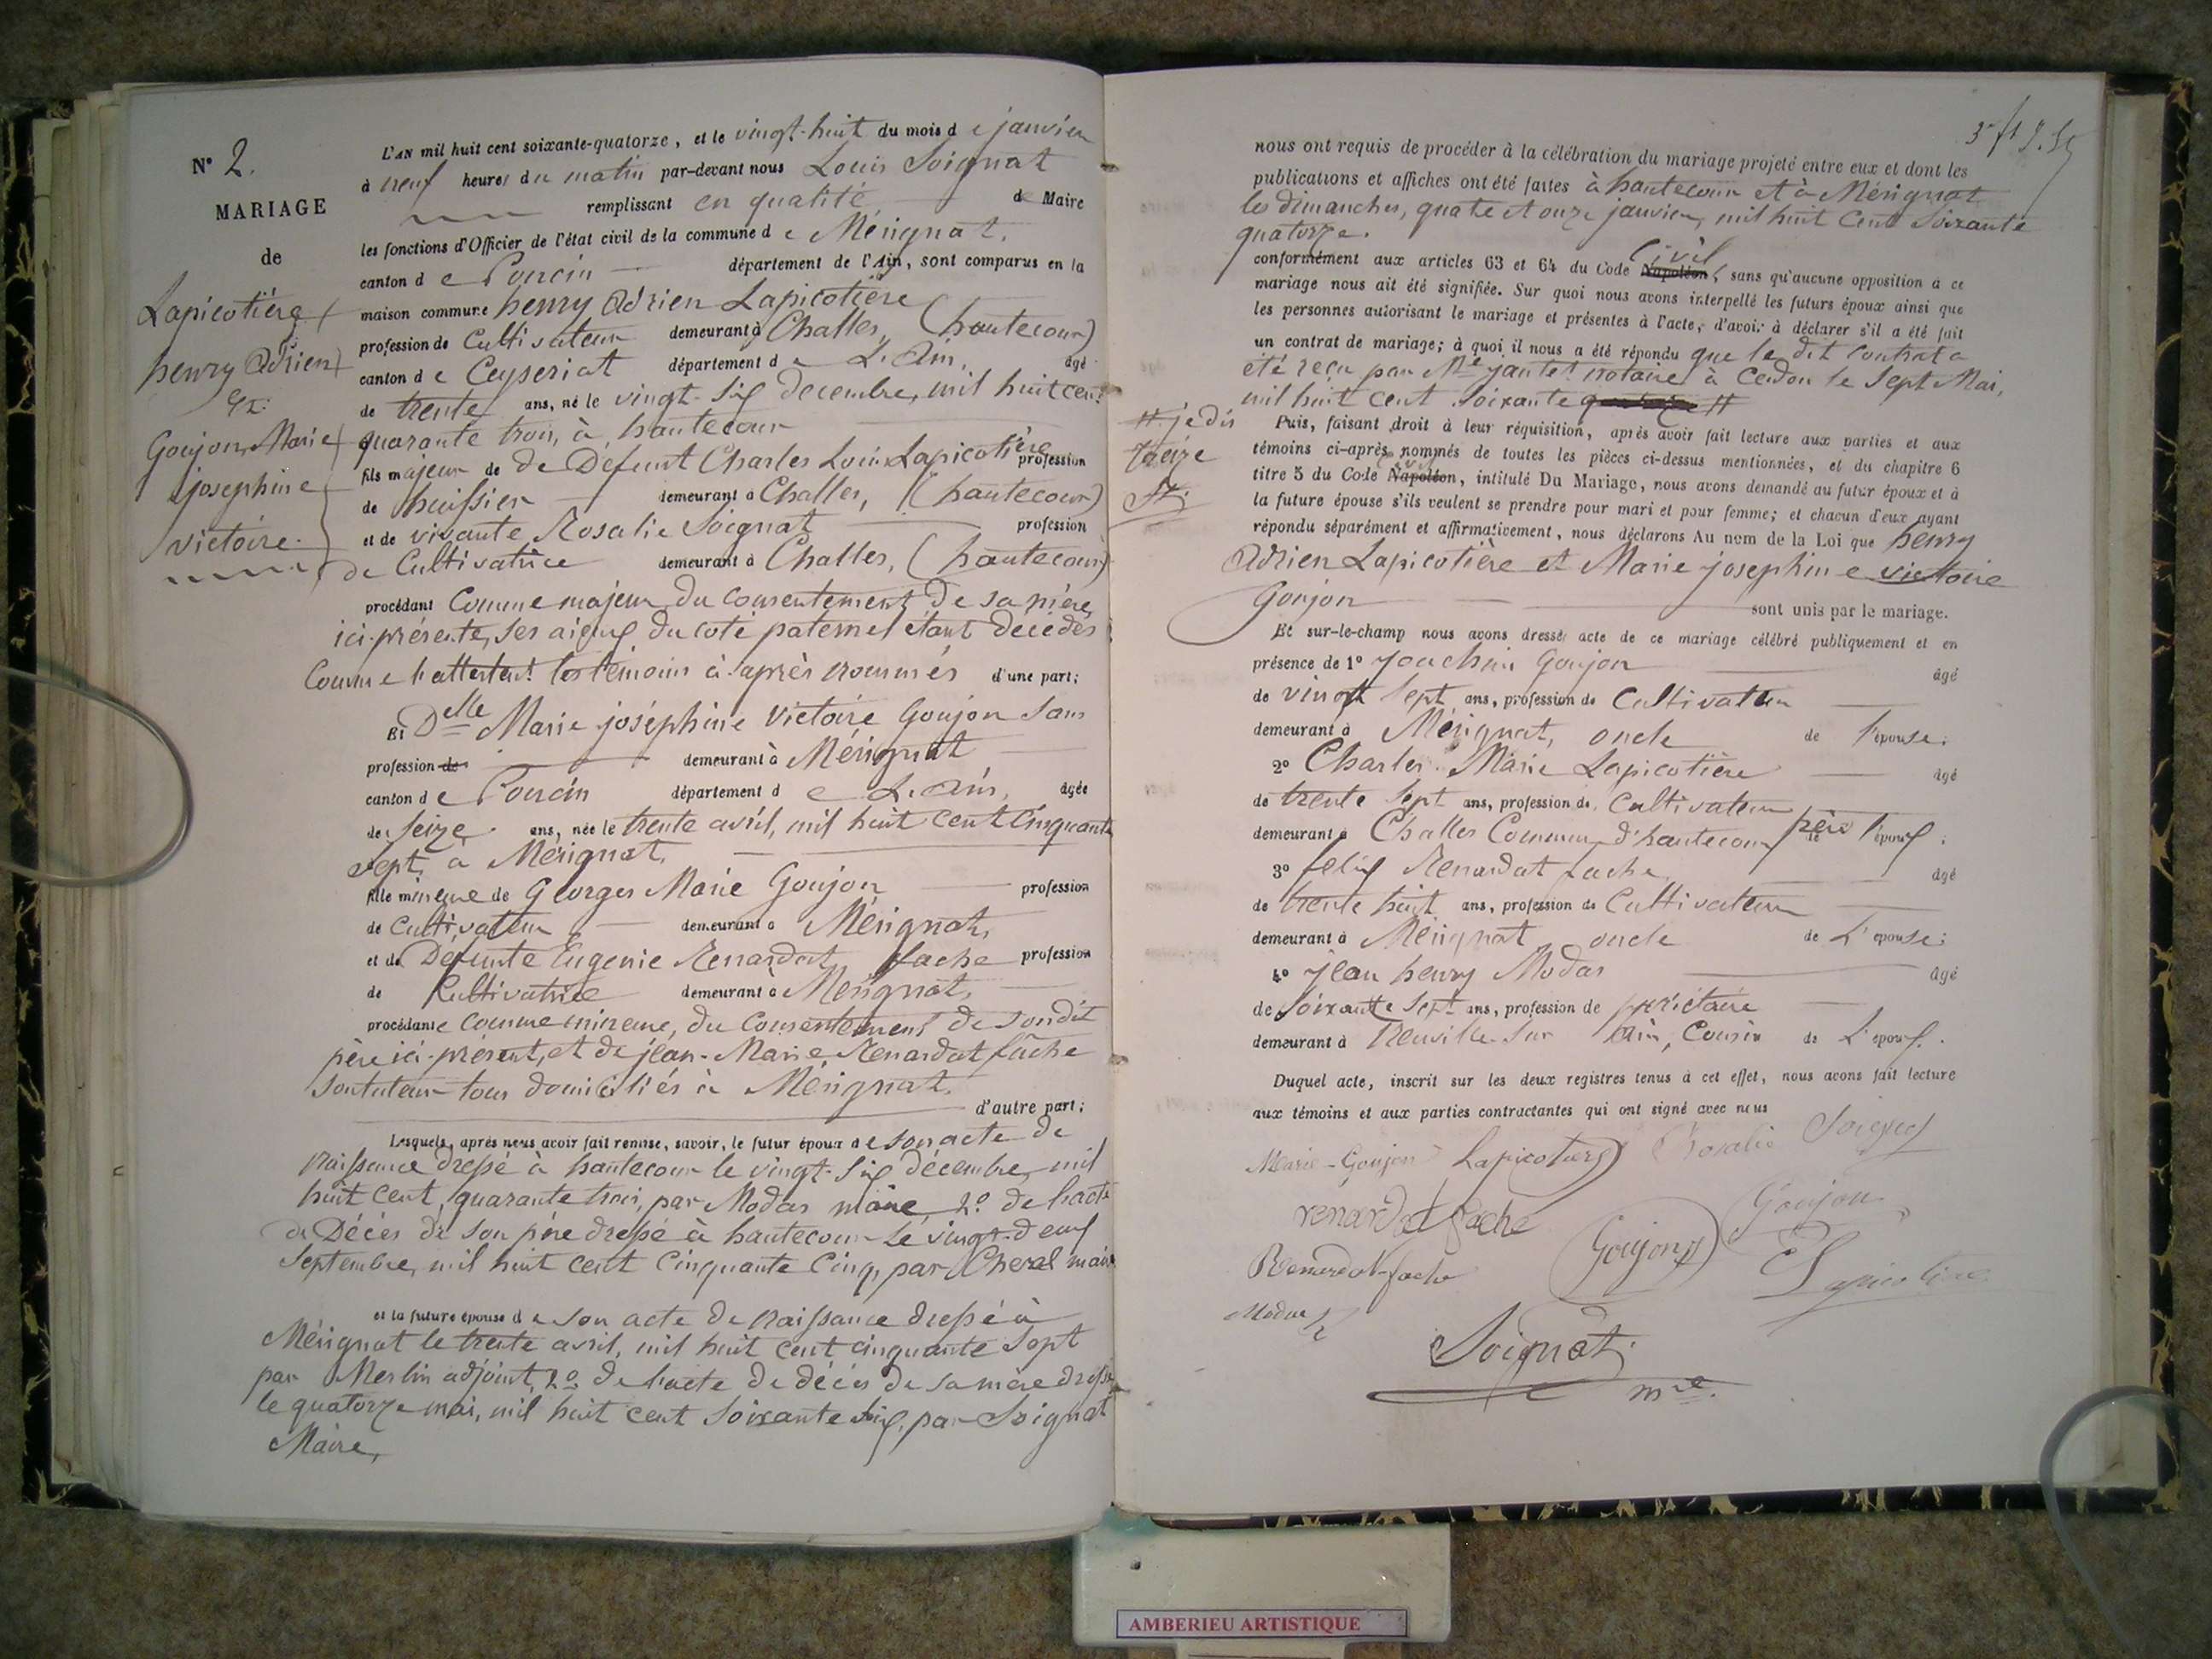 N° 2.
MARIAGE
de
Lapicotière
henry Adrien
Et
Goujon Marie
josephine
victoire.
L'AN mil huit cent soixante-quatorze, et le vingt-huit du mois de janvier
à neuf heures du matin par-devant nous Louis Soignat
remplissant en qualité de Maire
les fonctions d'Officier de l'état civil de la commune de Mérignat,
canton de Poncin département de l'Ain, sont comparus en la
maison commune henry Adrien Lapicotière
profession de Cultivateur demeurant à Challes, (hautecour)
canton de Ceyseriat département de L'Ain, âgé
de trente ans, né le vingt-six decembre, mil huit cent
quarante trois, à hautecour
fils majeur de de Defunt Charles Louis Lapicotière profession
de huissier demeurant à Challes, (hautecour)
et de vivante Rosalie Soignat profession
de Cultivatrice demeurant à Challes, (hautecour)
procédant Comme majeur du consentement de sa mère,
ici-présente, ses aïeux du coté paternel étant decedés
Comme l'attestent les témoins ci-après nommés d'une part;
Et Delle Marie joséphine Victoire Goujon Sans
profession de demeurant à Mérignat
canton de Poncin département de L'Ain, âgée
de seize ans, née le trente avril, mil huit cent cinquante
sept, à Mérignat,
fille mineure de Georges Marie Goujon profession
de Cultivateur demeurant à Mérignat,
et de Défunte Eugenie Renardat fache profession
de Cultivatrice demeurant à Mérignat,
procédante comme mineure, du Consentement de son dit
père ici-présent, et de jean-Marie Renardat fâche
son tuteur tous domiciliés à Mérignat.
d'autre part;
Lesquels, après nous avoir fait remise, savoir, le futur époux de son acte de
naissance dressé à hautecour le vingt-six décembre, mil
huit cent quarante trois, par Modas maire, 2° de l'acte
de Décès de son père dressé à hautecour le vingt-deux
Septembre, mil huit cent Cinquante Cinq, par Cheral maire
et la future épouse de son acte de naissance dressé à
Mérignat le trente avril, mil huit cent cinquante sept
par Merlin adjoint, 2° de l'acte de décès de sa mère dressé
le quatorze mai, mil huit cent soixante six, par Soignat
Maire,
nous ont requis de procéder à la célébration du mariage projeté entre eux et dont les
publications et affiches ont été faites à hautecour et à Mérignat
les dimanches, quatre et onze janvier, mil huit cent soixante
quatorze.
conformément aux articles 63 et 64 du Code Napoléon Civil, sans qu'aucune opposition à ce
mariage nous ait été signifiée. Sur quoi nous avons interpellé les futurs époux ainsi que
les personnes autorisant le mariage et présentes à l'acte, d'avoir à déclarer s'il a été fait
un contrat de mariage; à quoi il nous a été répondu que le dit contrat a
été reçu par Me jantet notaire à Cerdon le sept Mai,
mil huit cent soixante quatorze #
# je dis
treize
St.
Puis, faisant droit à leur réquisition, après avoir fait lecture aux parties et aux
témoins ci-après nommés de toutes les pièces ci-dessus mentionnées, et du chapitre 6
titre 5 du Code Napoléon civil, intitulé Du Mariage, nous avons demandé au futur époux et à
la future épouse s'ils veulent se prendre pour mari et pour femme; et chacun d'eux ayant
répondu séparément et affirmativement, nous déclarons Au nom de la Loi que henry
Adrien Lapicotière et Marie josephine victoire
Goujon sont unis par le mariage.
Et sur-le-champ nous avons dressé acte de ce mariage célébré publiquement et en
présence de 1° Joachim Goujon âgé
de vingt sept ans, profession de Cultivateur
demeurant à Mérignat, oncle de l'épouse;
2° Charles Marie Lapicotière âgé
de trente sept ans, profession de Cultivateur
demeurant à Challes Commune d'hautecour, frère de l'époux;
3° felix Renardat fache âgé
de trente huit ans, profession de Cultivateur
demeurant à Mérignat oncle de L'épouse;
4° jean henry Modas âgé
de soixante sept ans, profession de priétaire
demeurant à Neuville sur Ain, Cousin de L'époux.
Duquel acte, inscrit sur les deux registres tenus à cet effet, nous avons fait lecture
aux témoins et aux parties contractantes qui ont signé avec nous
Marie-Goujon Lapicotière Rosalie Soignat
renardat fache Goujon
Renardat-fache Goujon Lapicotière
Modas
Soignat
mre.
AMBERIEU ARTISTIQUE